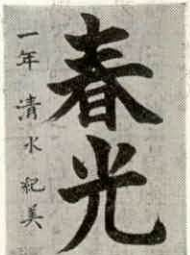 春光
一年 清水紀美